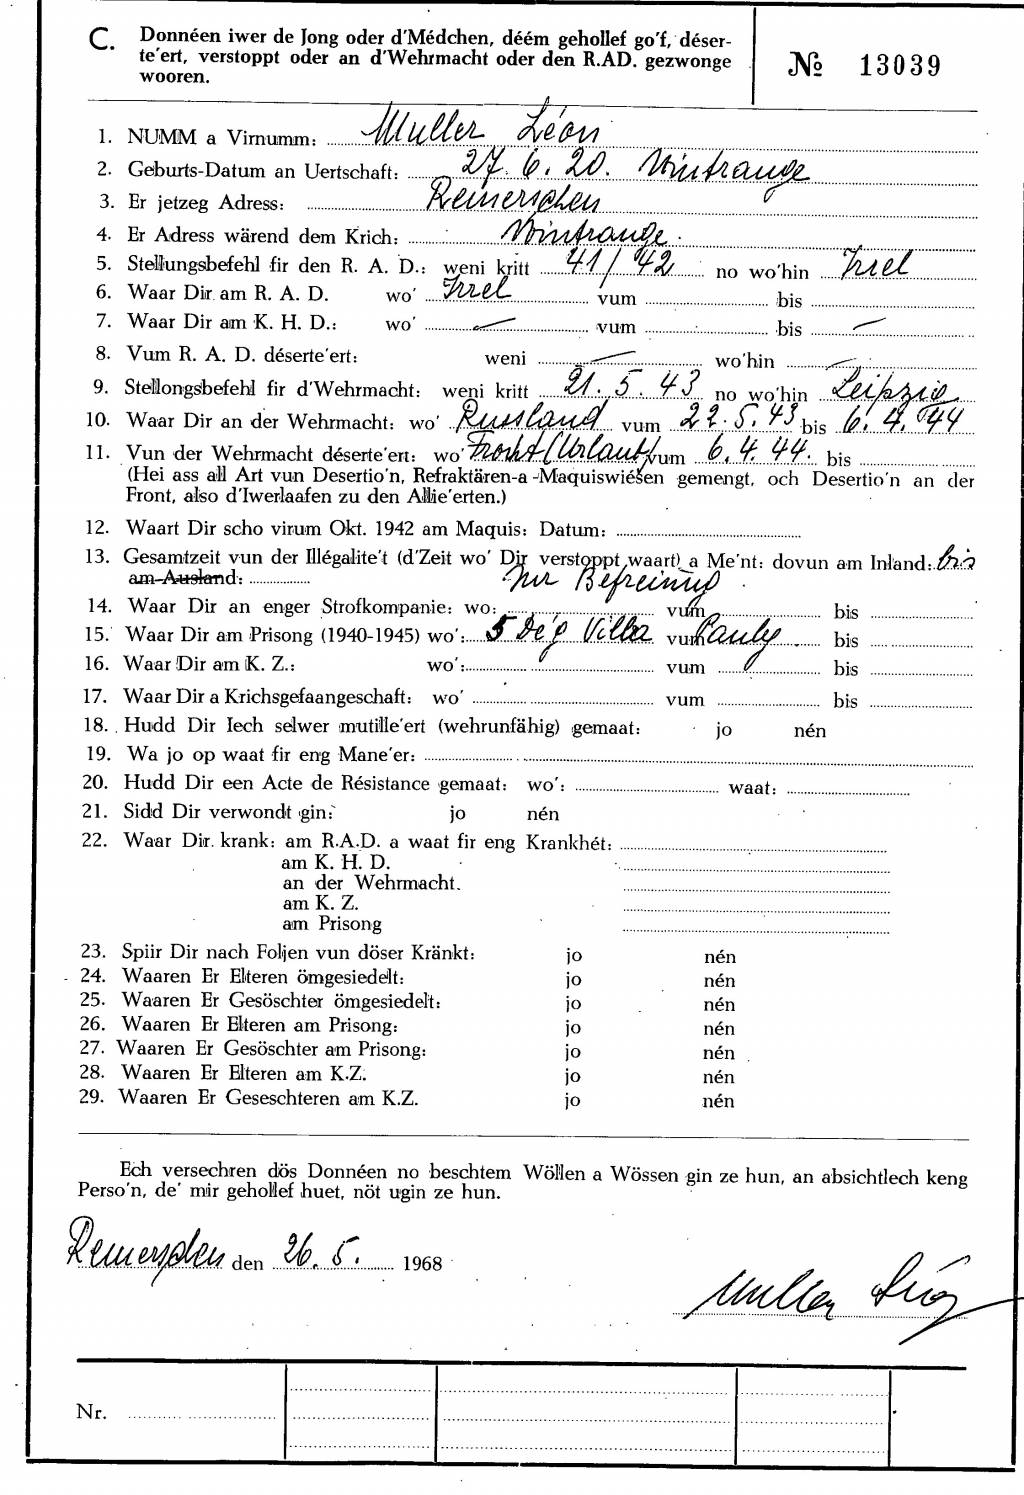 C. Donnéen iwer de Jong oder d'Médchen, déém gehollef go'f, déser-
te'ert, verstoppt oder an d'Wehrmacht oder den R.AD. gezwonge
wooren.
№ 13039
1. NUMM a Virnumm: Muller Léon
2. Geburts-Datum an Uertschaft: 27. 6. 20. Wintrange
3. Er jetzeg Adress: Remerschen
4. Er Adress wärend dem Krich: Wintrange
5. Stellungsbefehl fir den R. A. D.: weni kritt 41/42 no wo'hin Irrel
6. Waar Dir am R. A. D. wo' Irrel vum bis
7. Waar Dir am K. H. D.: wo' — vum bis —
8. Vum R. A. D. déserte'ert: weni — wo'hin —
9. Stellongsbefehl fir d'Wehrmacht: weni kritt 21. 5. 43 no wo'hin Leipzig
10. Waar Dir an der Wehrmacht: wo' Russland vum 22. 5. 43 bis 6. 4. 44
11. Vun der Wehrmacht déserte'ert: wo' Front (Urlaub) vum 6. 4. 44. bis
(Hei ass all Art vun Desertio'n, Refraktären-a-Maquiswiésen gemengt, och Desertio'n an der
Front, also d'Iwerlaafen zu den Allie'erten.)
12. Waart Dir scho virum Okt. 1942 am Maquis: Datum:
13. Gesamtzeit vun der Illégalite't (d'Zeit wo' Dir verstoppt waart) a Me'nt: dovun am Inland: bis
am Ausland: zur Befreiung
14. Waar Dir an enger Strofkompanie: wo: vum bis
15. Waar Dir am Prisong (1940-1945) wo': 5 Dég Villa vum Pauly bis
16. Waar Dir am K. Z.: wo': vum bis
17. Waar Dir a Krichsgefaangeschaft: wo' vum bis
18. Hudd Dir Iech selwer mutille'ert (wehrunfähig) gemaat: jo nén
19. Wa jo op waat fir eng Mane'er:
20. Hudd Dir een Acte de Résistance gemaat: wo': waat:
21. Sidd Dir verwondt gin: jo nén
22. Waar Dir krank: am R.A.D. a waat fir eng Krankhét:
am K. H. D.
an der Wehrmacht.
am K. Z.
am Prisong
23. Spiir Dir nach Foljen vun döser Kränkt: jo nén
24. Waaren Er Elteren ömgesiedelt: jo nén
25. Waaren Er Gesöschter ömgesiedelt: jo nén
26. Waaren Er Elteren am Prisong: jo nén
27. Waaren Er Gesöschter am Prisong: jo nén
28. Waaren Er Elteren am K.Z. jo nén
29. Waaren Er Geseschteren am K.Z. jo nén
Ech versechren dös Donnéen no beschtem Wöllen a Wössen gin ze hun, an absichtlech keng
Perso'n, de' mir gehollef huet, nöt ugin ze hun.
Remerschen den 26. 5. 1968
Muller Léon
Nr.